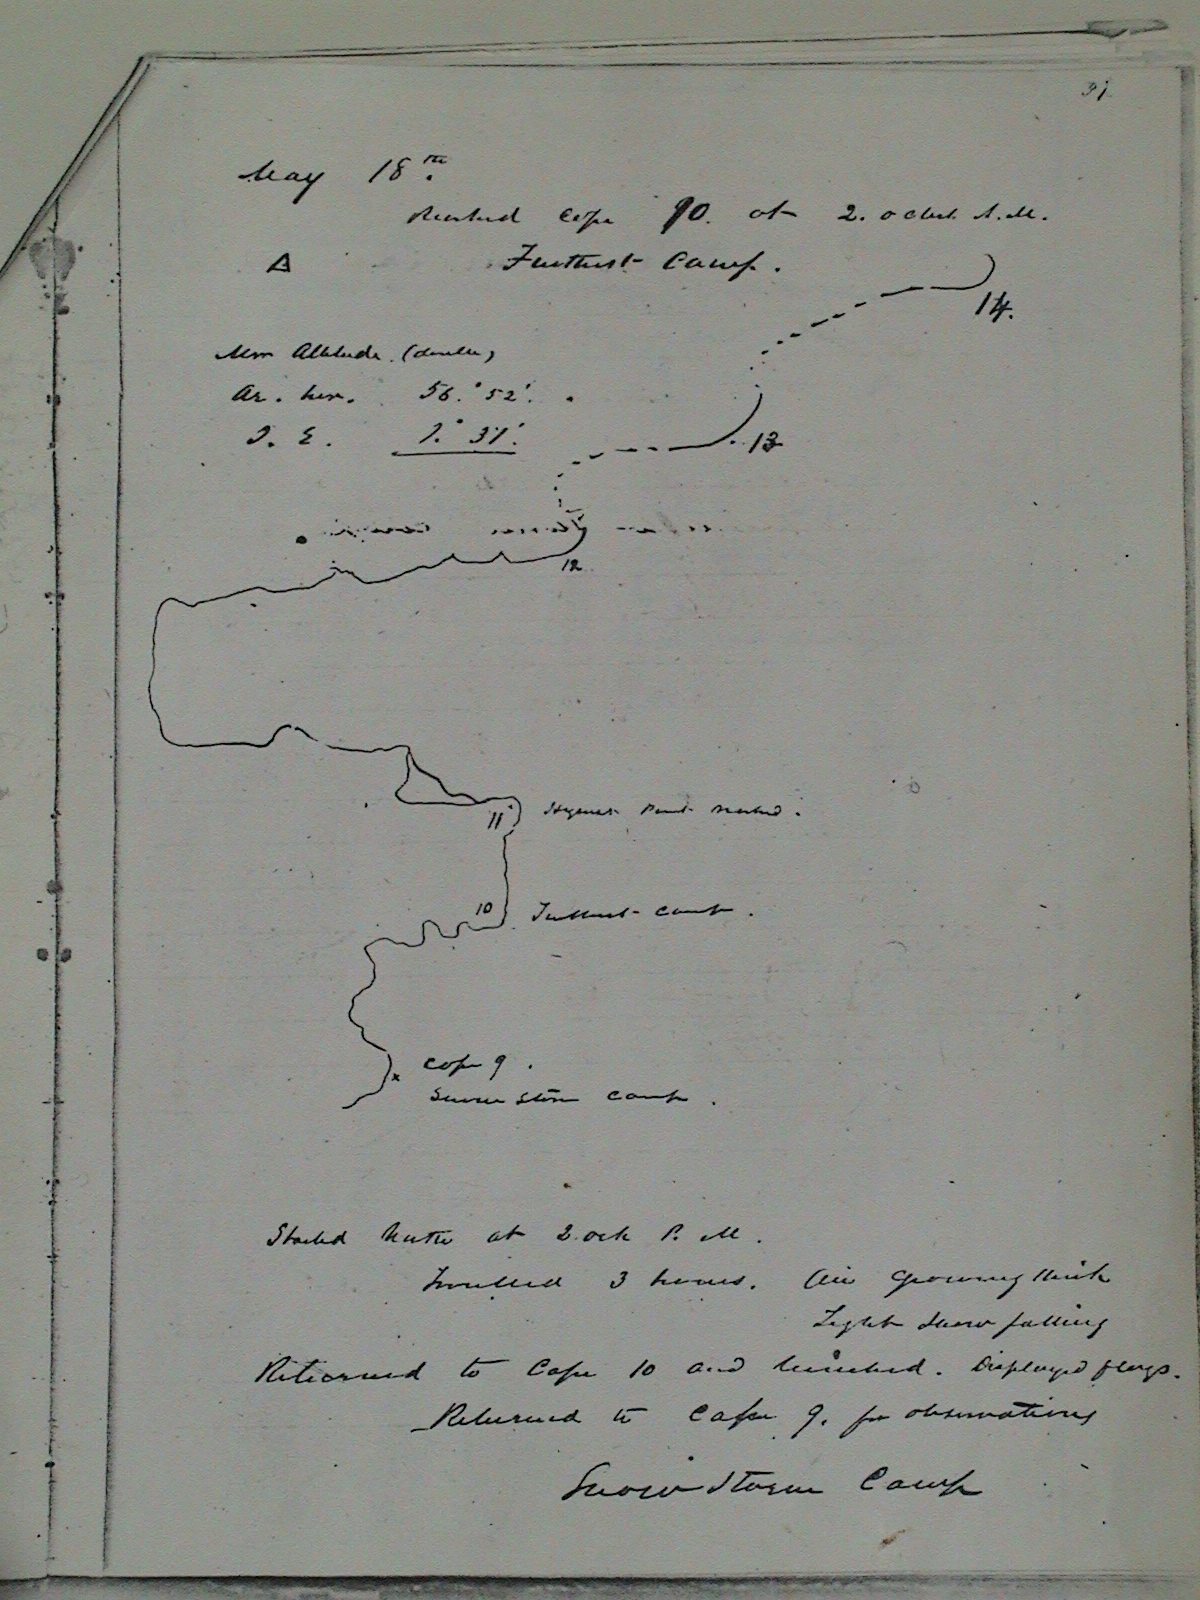 31
May 18th.
Reached Cape 10. at 2. oclock A.M.
Furthest Camp.
14.
Mer Altitude. (double)
Ar. hor. 56.° 52'.
I. E. 1.° 31'.
13
12
11 Highest Point reached.
10 Furthest camp.
Cape 9.
Snow Storm Camp.
Started North at 2 ock P. M.
Travelled 3 hours. Air growing thick
Light snow falling
Returned to Cape 10 and lunched. Displayed flags.
Returned to Cape 9. for observations
Snow Storm Camp